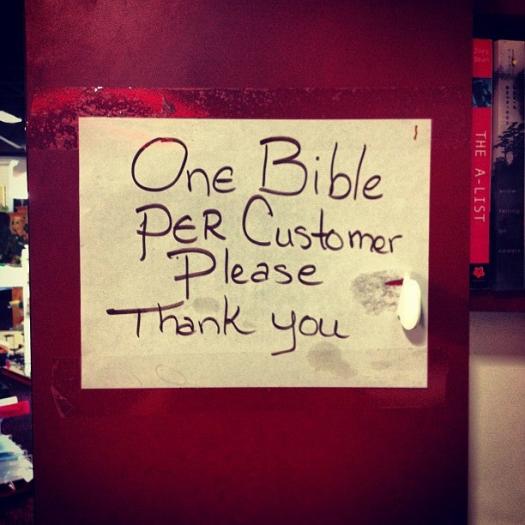 One Bible
PER Customer
Please
Thank you
THE A-LIST